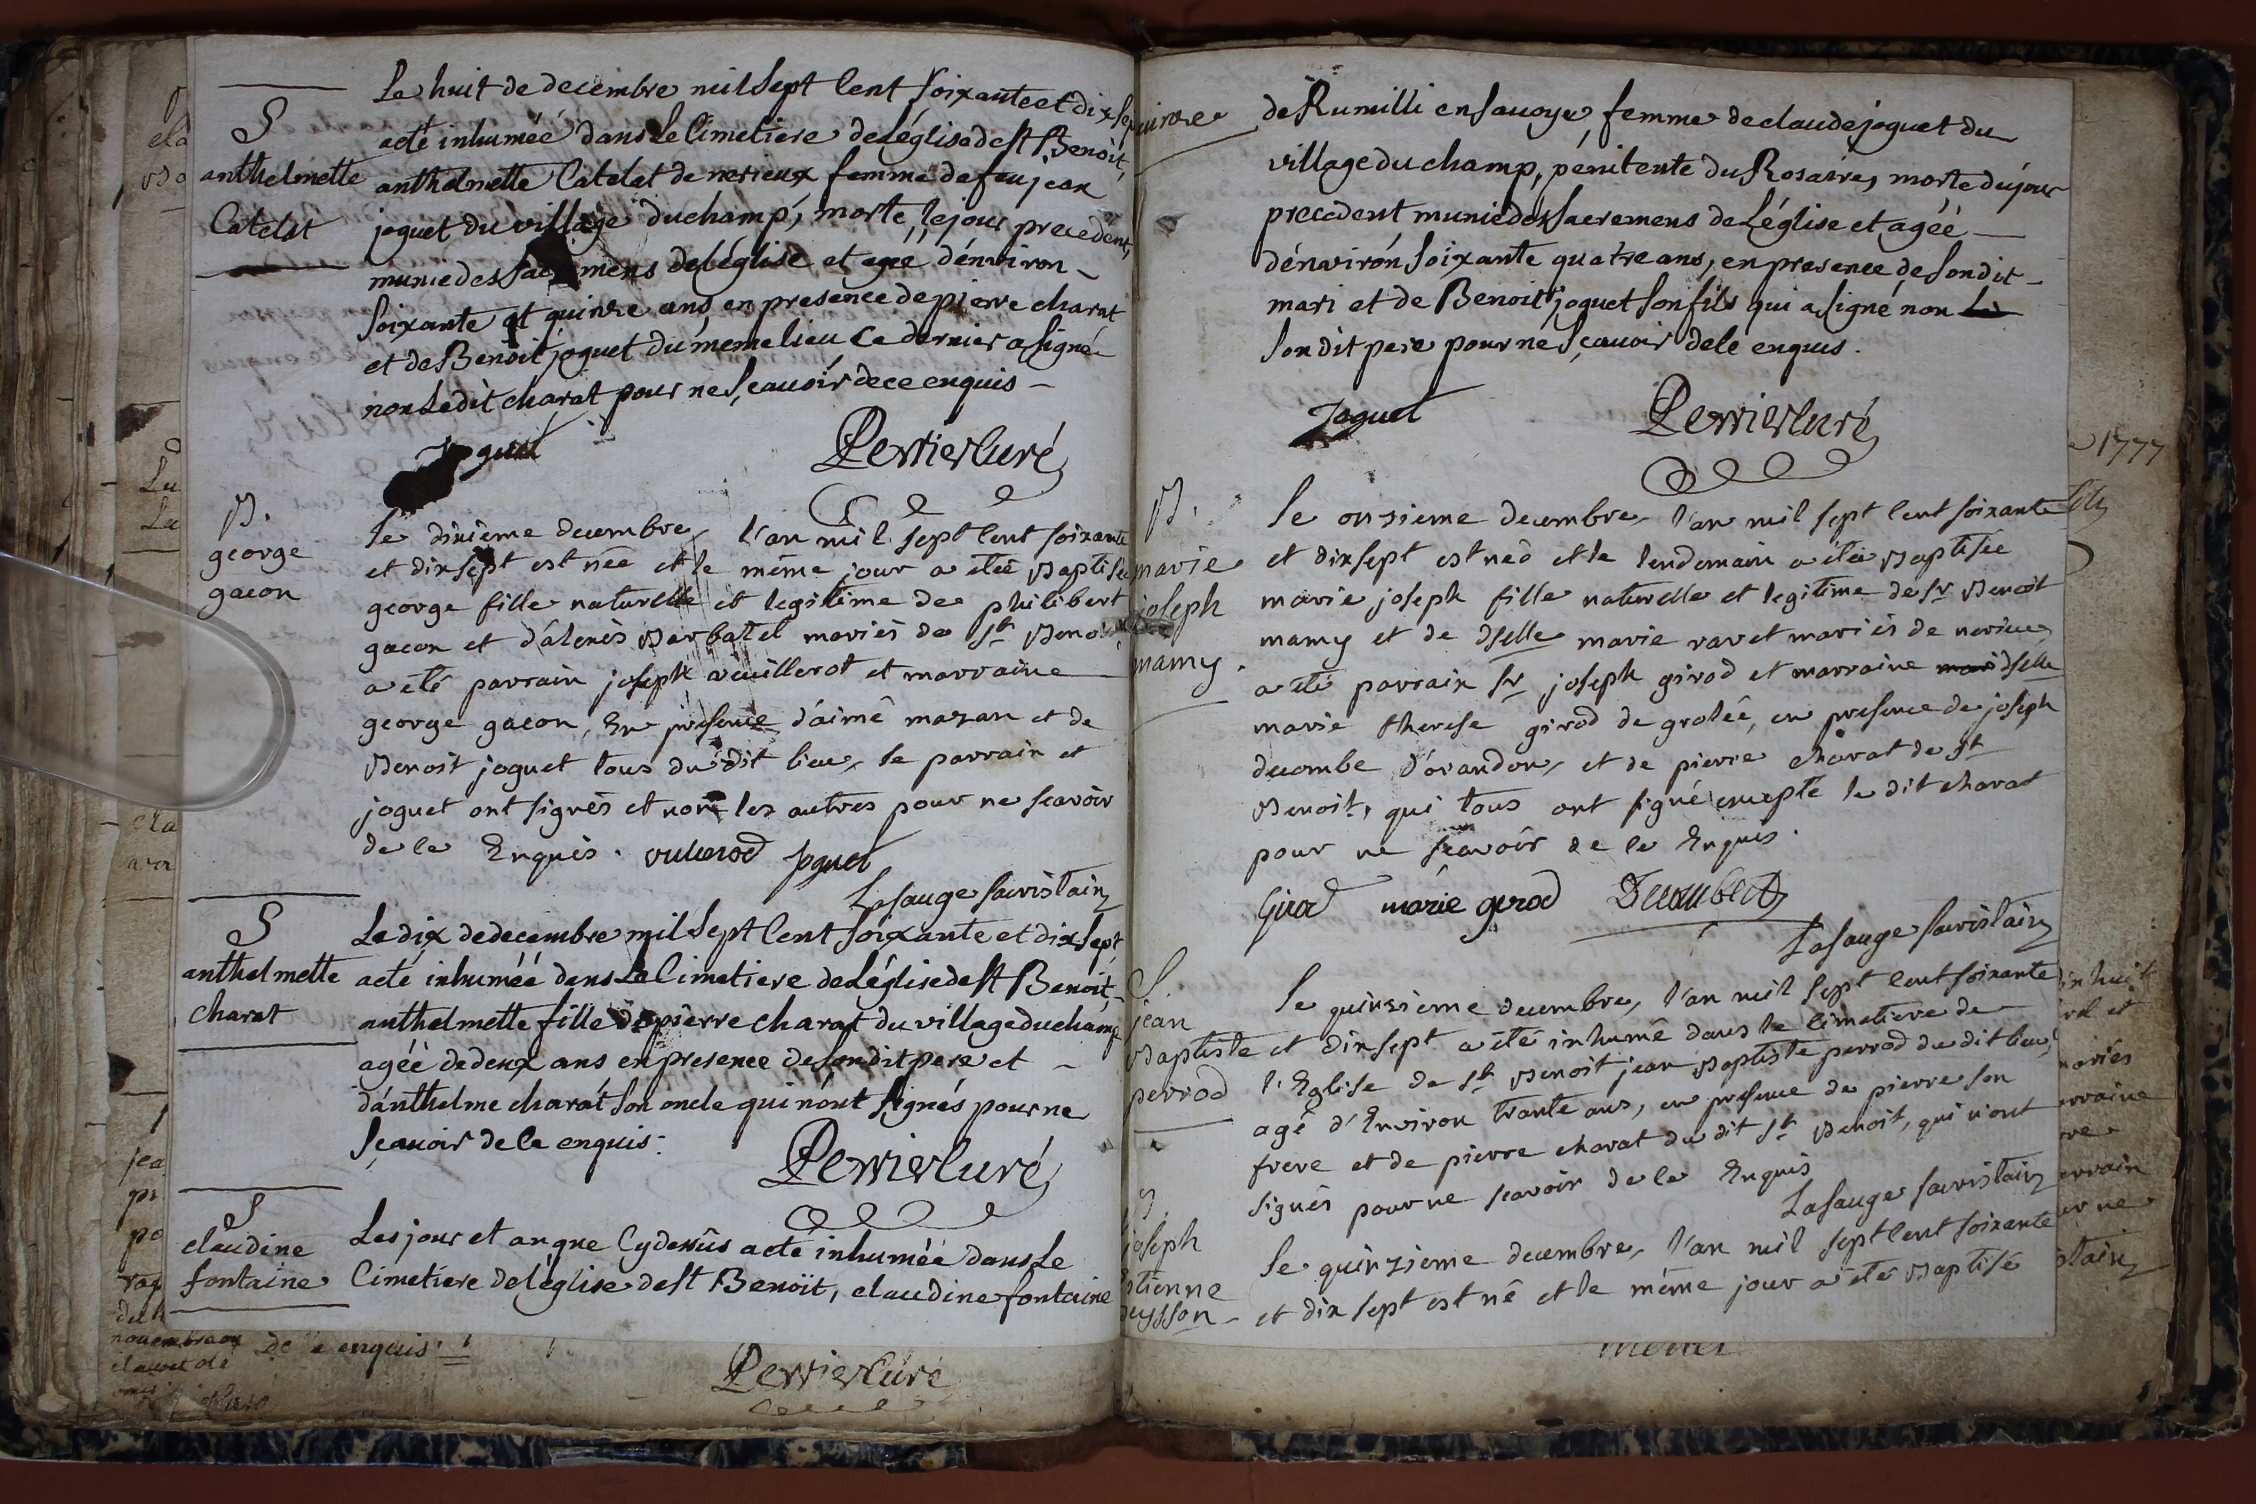 Le huit de decembre mil sept cent soixante et dix sept
S
anthelmette
Catelat
a eté inhuméé dans le Cimetiere de Léglise de st Benoit,
anthelmette Catelat de nerieux femme de feu jean
joguet du village du champ, morte le jour precedent,
munie des sacremens de léglise et agéé d'énviron
soixante et quinze ans, en presence de pierre charat
et de Benoit joguet du même lieu Ce dernier a signé
non Ledit charat pour ne sçauoir de ce enquis
Joguet Perrier Curé
B.
george
gacon
le dixieme decembre, l'an mil sept cent soixante
et dixsept est née et le même jour a eteé Baptisée
george fille naturelle et legitime de philibert
gacon et d'alexis Barbatel mariés de st Benoit
a eté parrain joseph vuillerot et marraine
george gacon, En presence d'aimé mazan et de
Benoit joguet tous du dit lieu, le parrain et
joguet ont signés et non les autres pour ne scavoir
de ce Enquis. vulierod Joguet
Lasauge sacristain
S
anthelmette
charat
Le dix de decembre mil sept Cent soixante et dix sept
a eté inhuméé dans Le Cimetiere de Léglise de st Benoit
anthelmette fille de pierre charat du village du champ
agéé de deux ans en presence de son dit pere et
d'ánthelme charat son oncle qui n'ont signés pour ne
sçauoir de ce enquis.
Perrier Curé
S
claudine
fontaine
Les jour et an que Cy dessus a eté inhuméé dans Le
Cimetiere de léglise de st Benoit, claudine fontaine
de ce enquis
Perrier Curé
de Rumilli en sauoye, femme de claude joguet du
village du champ, pénitente du Rosaire, morte du jour
precedent munie dés sacremens de Léglise et agéé
dénvirón soixante quatre ans, en presence de son dit
mari et de Benoit joguet son fils qui a signé non Le
son dit pere pour né sçauoir de ce enquis.
Joguet Perrier Curé
B.
marie
joseph
mamy.
le onzieme decembre, l'an mil sept cent soixante
et dixsept est neé et le lendemain a eteé Baptisée
marie joseph fille naturelle et legitime de sr Benoit
mamy et de dselle marie ravet mariés de nerieu
a eté parrain sr joseph girod et marraine mari dselle
marie therese girod de groleé, en presence de joseph
decombe d'orandon, et de pierre charat de st
Benoit, qui tous ont signé excepté le dit charat
pour ne scavoir de ce Enquis.
Girod marie girod Decombe
Lasauge sacristain
S.
jean
Baptiste
perrod
le quinzieme decembre, l'an mil sept cent soixante
et dixsept a eté inhumé dans le cimetiere de
l'Eglise de st Benoit jean Baptiste perrod du dit lieu,
agé d'Environ trante ans, en presence de pierre son
frere et de pierre charat du dit st Benoit, qui n'ont
signés pour ne scavoir de ce Enquis
Lasauge sacristain
B.
joseph
etienne
le quinzieme decembre, l'an mil sept cent soixante
et dix sept est né et le même jour a eté Baptisé
1777